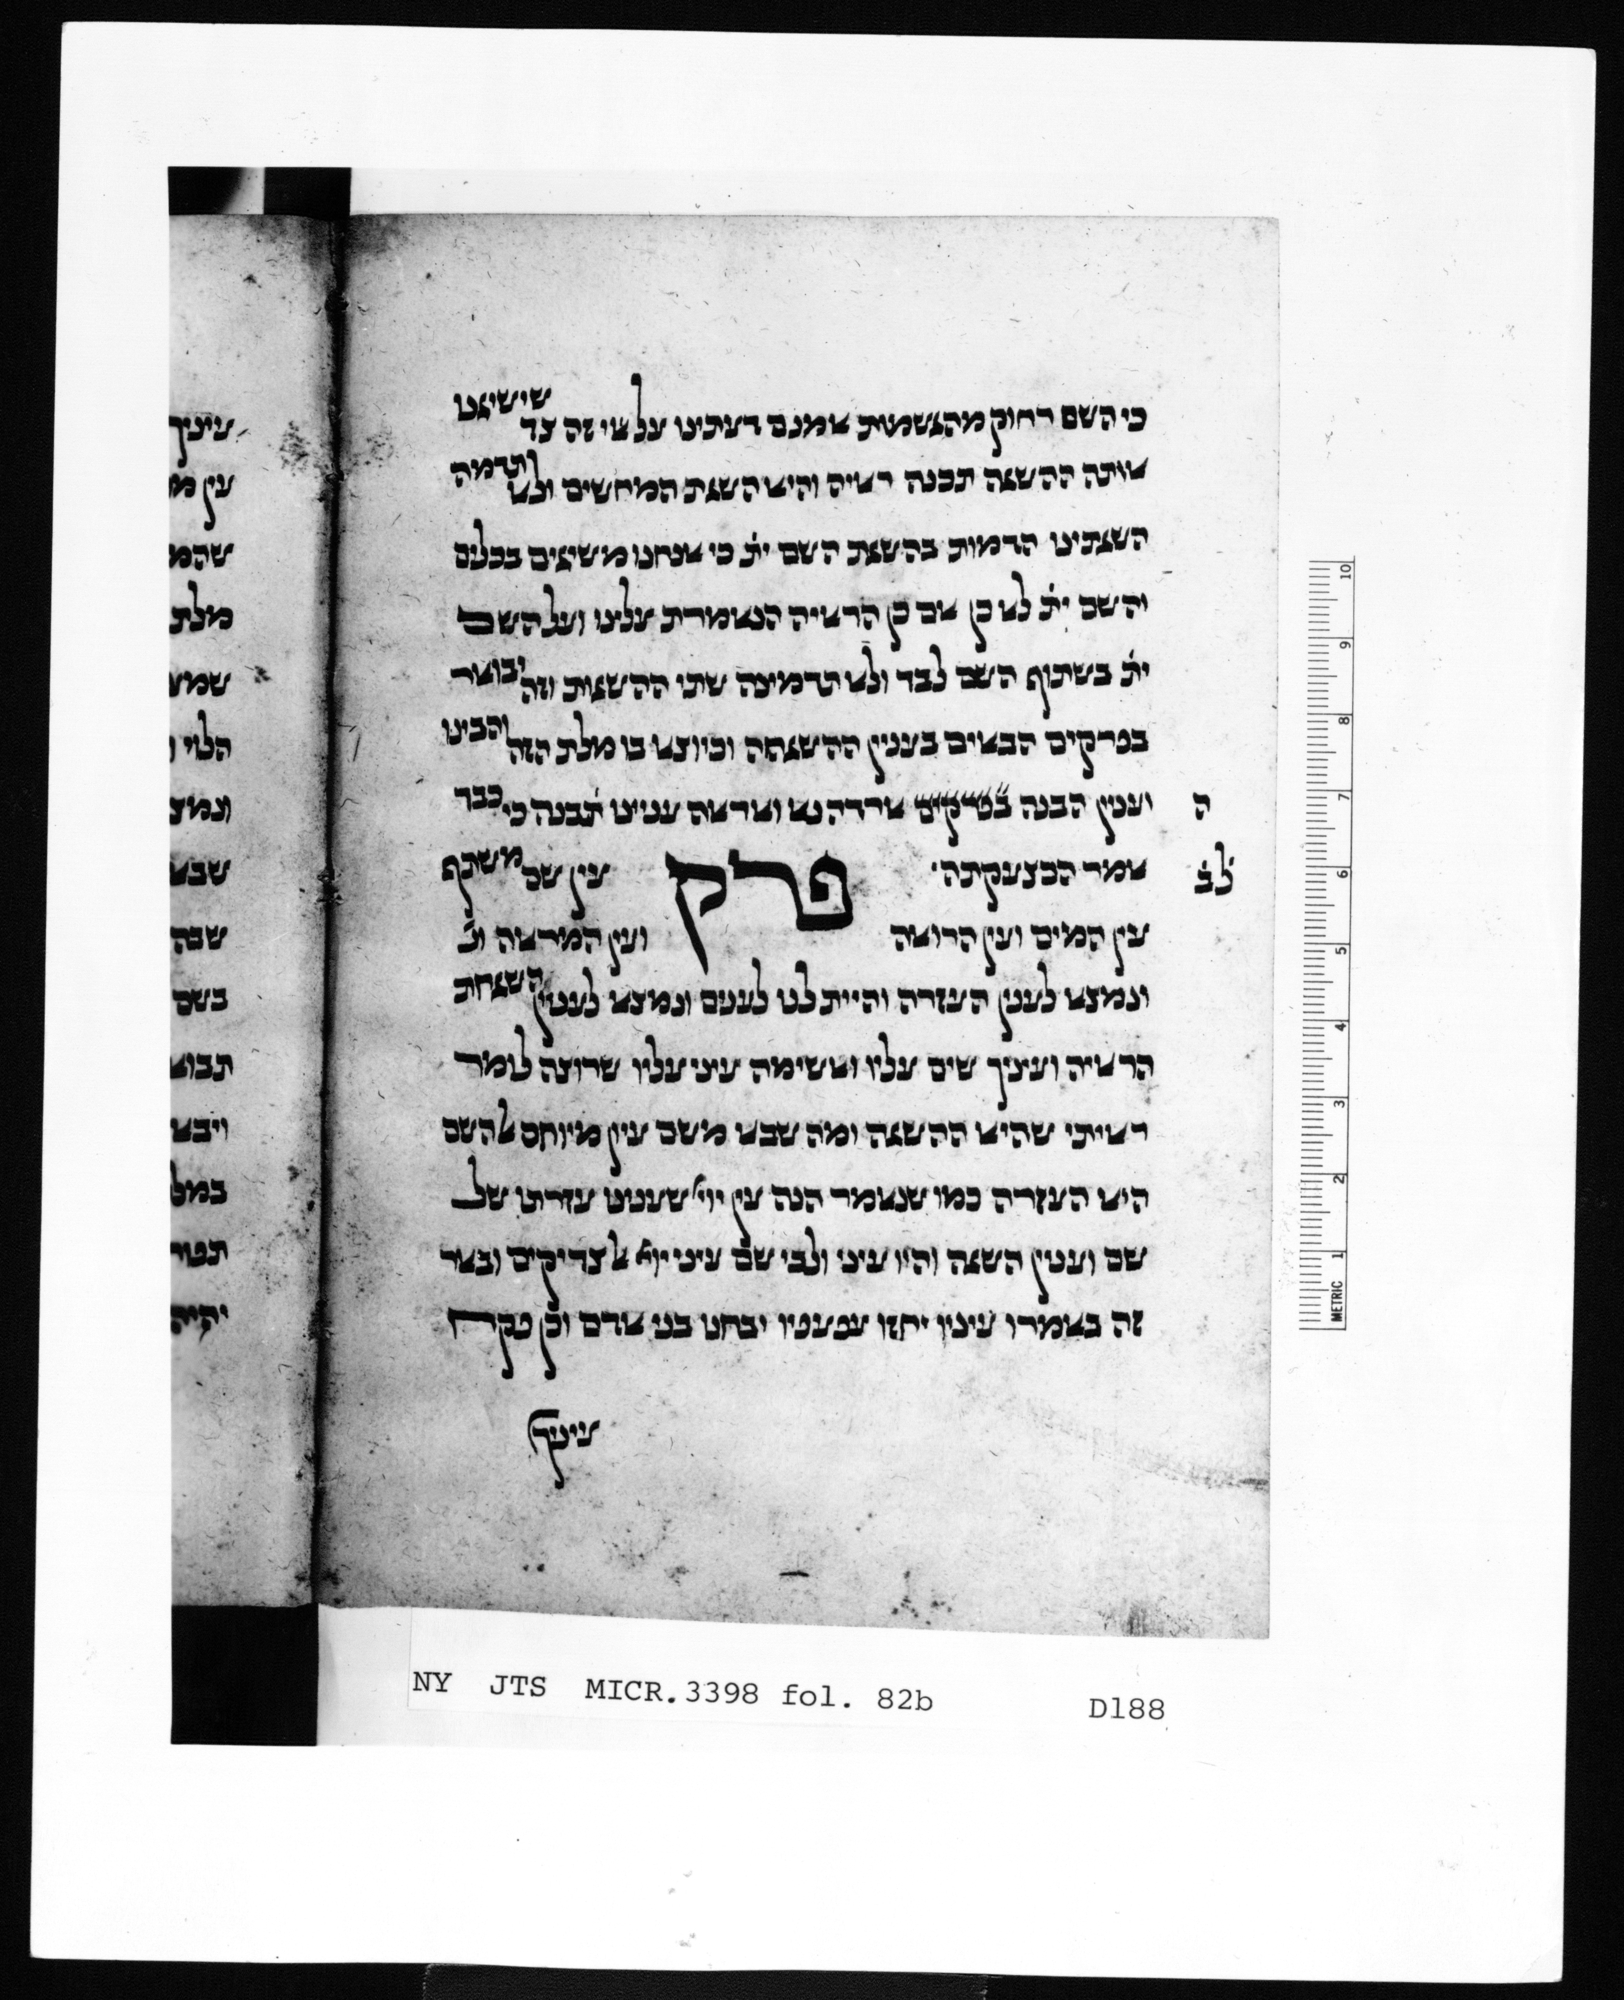 כי השם רחוק מהגשמות אמנם דעתינו על אי זה צד שישיגנו
אותה ההשגה תכנה ראיה והיא השגת המוחשים ולא ותדמה
השגתינו הדמות בהשגת השם ית׳ כי אנחנו משיגים בכלים
והשם ית׳ לא כן אם כן הראיה הנאמרת עלינו ועל השם
ית׳ בשתוף השם לבד ולא תדמינה שתי ההשגות וזה יבואר
בפרקים הבאים בענין ההשגחה וכיוצא בו מלת הזה והבינו
ה וענין הבנה בפרקים ארדה נא ואראה ענינו תבנה כי כבר
לב אמר הכצעקתה· פרק עין שם משתף
עין המים ועין הרואה ועין המראה וכ׳
ונמצא לענין העזרה והיית לנו לעינים ונמצא לענין השגחת
הראיה ועיניך שים עליו ואשימה עיני עליו שרוצה לומר
ראיתי שהיא ההשגה ומה שבא משם עין מיוחס להשם
היא העזרה כמו שנאמר הנה עין יוי שענינו עזרתו של
שם וענין השגה והיו עיני ולבי שם עיני יוי אל צדיקים ובאר
זה באמרו עיניו יחזו עפעפיו יבחנו בני אדם וכן פקח
עיניך
עיניך
עין
שהמ
מלת
שמע
הלוי
ונמצ
שבא
שבה
בשם
תבוא
ויבא
במל
תפור
יהיה
NY JTS MICR.3398 fol. 82b D188
10
9
8
7
6
5
4
3
2
1
METRIC